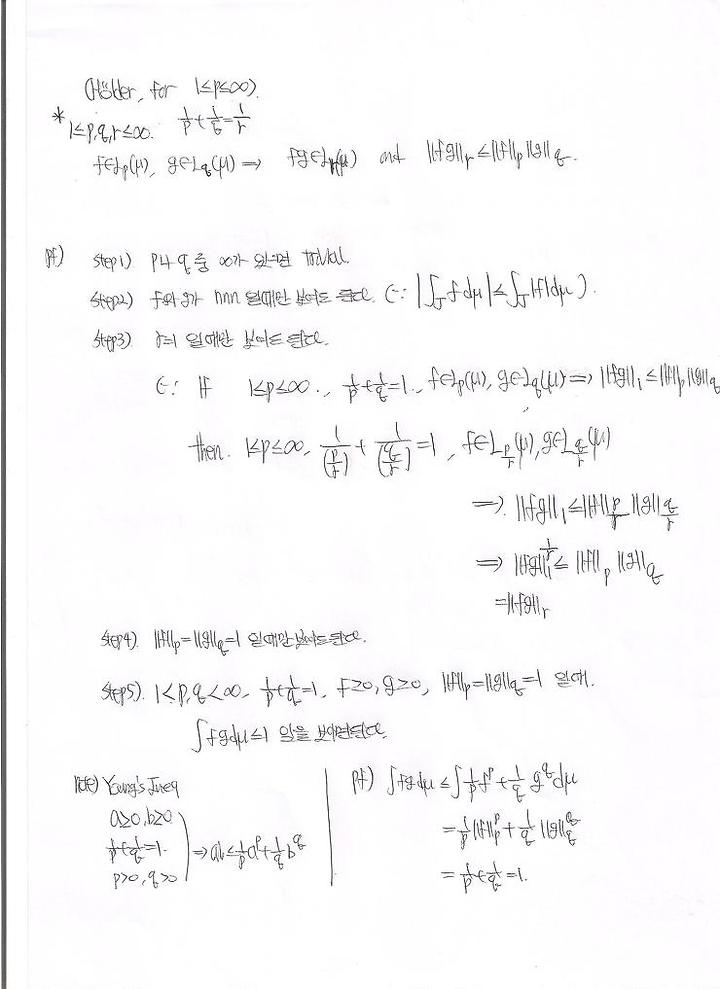 (Hölder, for 1≤p≤∞).
* 1≤p,q,r≤∞. 1/p+1/q=1/r
f∈Lp(μ), g∈Lq(μ) ⇒ fg∈Lp(μ) and ||fg||r ≤ ||f||p ||g||q.
pf) step1) p나 q 중 ∞가 있으면 trivial.
step2) f와 g가 nnn 일때만 보여도 된다. (∵ |∫f dμ| ≤ ∫|f|dμ).
step3) r=1 일때만 보여도 된다.
(∵ If 1≤p≤∞., 1/p+1/q=1., f∈Lp(μ), g∈Lq(μ) ⇒ ||fg||1 ≤ ||f||p ||g||q
then. 1≤p≤∞, 1/(p/r) + 1/(q/r) = 1, f∈L p/r (μ), g∈L q/r (μ)
⇒. ||fg||1 ≤ ||f|| p/r ||g|| q/r
⇒ ||fg||1^(1/r) ≤ ||f||p ||g||q
=||fg||r
step4). ||f||p=||g||q=1 일때만 보여도 된다.
step5). 1<p,q<∞, 1/p+1/q=1, f≥0, g≥0, ||f||p=||g||q=1 일때.
∫fgdμ≤1 임을 보이면된다.
note) Young's Ineq
a≥0, b≥0
1/p+1/q=1.
p>0, q>0
⇒ ab≤1/p a^p+1/q b^q
pf) ∫fgdμ ≤ ∫1/p f^p+1/q g^q dμ
= 1/p ||f||p^p + 1/q ||g||q^q
= 1/p+1/q=1.